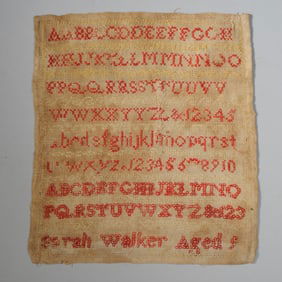 AABBCCDDEEFFGGH
HIIJJKKLLMMNNOO
PPQQRRSSTTUUVV
WWXXYYZZ&12345
abcdefghijklmnopqrst
uvwxyz12345678910
ABCDEFGHIJKLMNO
PQRSTUVWXYZ&123
Sarah Walker Aged 9